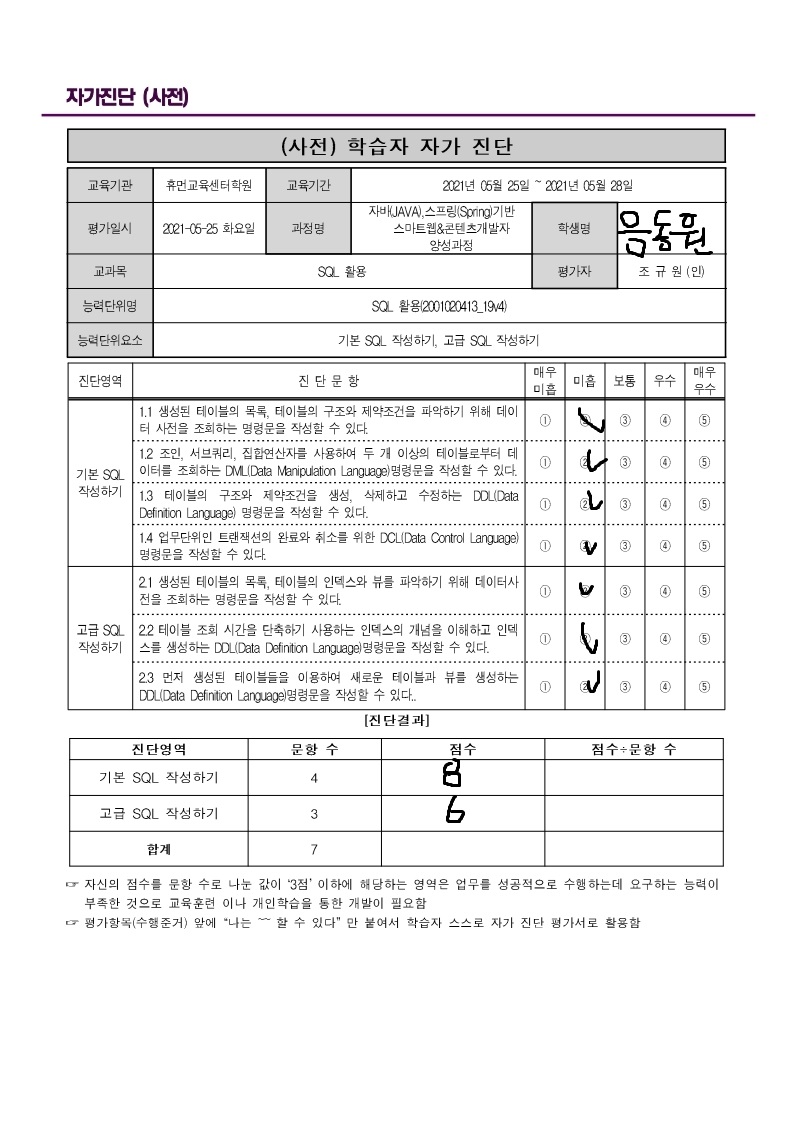 자가진단 (사전)
(사전) 학습자 자가 진단
교육기관 휴먼교육센터학원 교육기간 2021년 05월 25일 ~ 2021년 05월 28일
평가일시 2021-05-25 화요일 과정명 자바(JAVA),스프링(Spring)기반
스마트웹&콘텐츠개발자
양성과정
학생명 음동원
교과목 SQL 활용 평가자 조 규 원 (인)
능력단위명 SQL 활용(2001020413_19v4)
능력단위요소 기본 SQL 작성하기, 고급 SQL 작성하기
진단영역 진 단 문 항 매우 미흡 미흡 보통 우수 매우 우수
기본 SQL
작성하기
1.1 생성된 테이블의 목록, 테이블의 구조와 제약조건을 파악하기 위해 데이
터 사전을 조회하는 명령문을 작성할 수 있다.
① ② ③ ④ ⑤
1.2 조인, 서브쿼리, 집합연산자를 사용하여 두 개 이상의 테이블로부터 데
이터를 조회하는 DML(Data Manipulation Language)명령문을 작성할 수 있다.
① ② ③ ④ ⑤
1.3 테이블의 구조와 제약조건을 생성, 삭제하고 수정하는 DDL(Data
Definition Language) 명령문을 작성할 수 있다.
① ② ③ ④ ⑤
1.4 업무단위인 트랜잭션의 완료와 취소를 위한 DCL(Data Control Language)
명령문을 작성할 수 있다.
① ② ③ ④ ⑤
고급 SQL
작성하기
2.1 생성된 테이블의 목록, 테이블의 인덱스와 뷰를 파악하기 위해 데이터사
전을 조회하는 명령문을 작성할 수 있다.
① ② ③ ④ ⑤
2.2 테이블 조회 시간을 단축하기 사용하는 인덱스의 개념을 이해하고 인덱
스를 생성하는 DDL(Data Definition Language)명령문을 작성할 수 있다.
① ② ③ ④ ⑤
2.3 먼저 생성된 테이블들을 이용하여 새로운 테이블과 뷰를 생성하는
DDL(Data Definition Language)명령문을 작성할 수 있다..
① ② ③ ④ ⑤
[진단결과]
진단영역 문항 수 점수 점수÷문항 수
기본 SQL 작성하기 4 8
고급 SQL 작성하기 3 6
합계 7
☞ 자신의 점수를 문항 수로 나눈 값이 '3점' 이하에 해당하는 영역은 업무를 성공적으로 수행하는데 요구하는 능력이
부족한 것으로 교육훈련 이나 개인학습을 통한 개발이 필요함
☞ 평가항목(수행준거) 앞에 "나는 ~~ 할 수 있다" 만 붙여서 학습자 스스로 자가 진단 평가서로 활용함